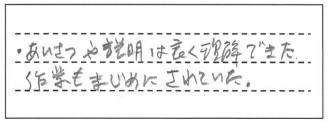 ・あいさつや説明は良く理解できた
作業もまじめにされていた。